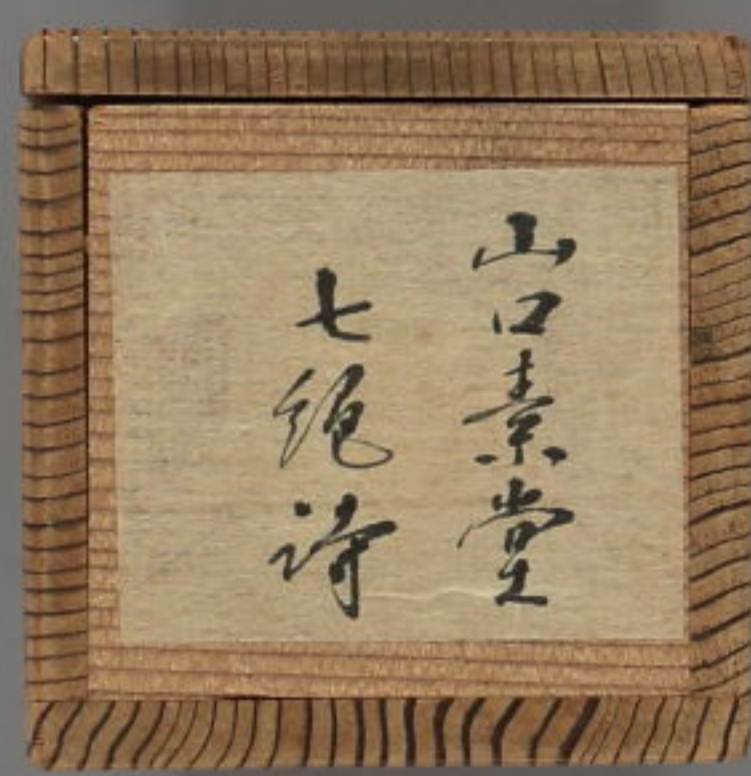 山口素堂
七絶詩